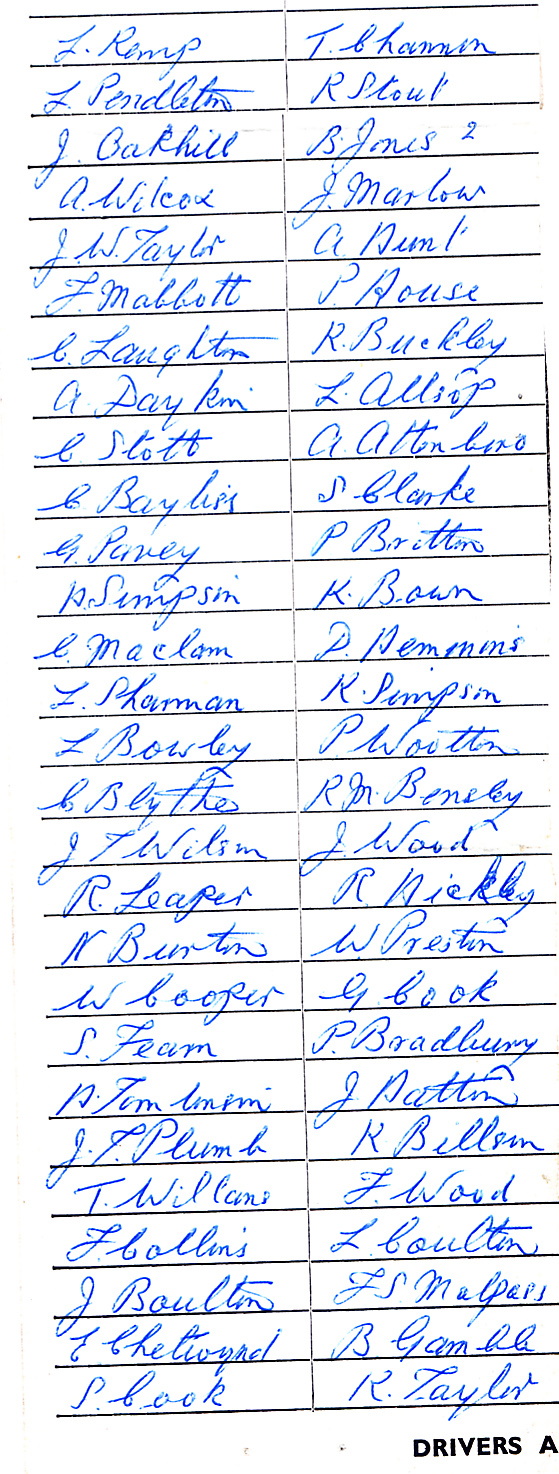 L. Kemp T. Channon
L. Pendleton R Stout
J. Oakhill B. Jones 2
A. Wilcox J. Marlow
J. W. Taylor A. Hunt
F. Mabbott P. House
C. Laughton R. Buckley
A. Daykin L. Allsop
C. Stott A. Attenboro
C. Bayliss S Clarke
G. Pavey P Britton
H. Simpson K. Bown
C. Maclam D. Hemmins
L. Sharman K. Simpson
L Bowley P. Wootton
C Blythe R M. Bensley
J T Wilson J. Wood
R. Leaper R Hickley
N Burton W. Preston
W Cooper G Cook
S. Fearn P. Bradbury
H. Tomlinson J Hatton
J. T. Plumb K Billson
T. Willans F. Wood
F Collins L Coulton
J Boulton F S Malpass
E Chetwynd B Gamble
S. Cook R. Taylor
DRIVERS A